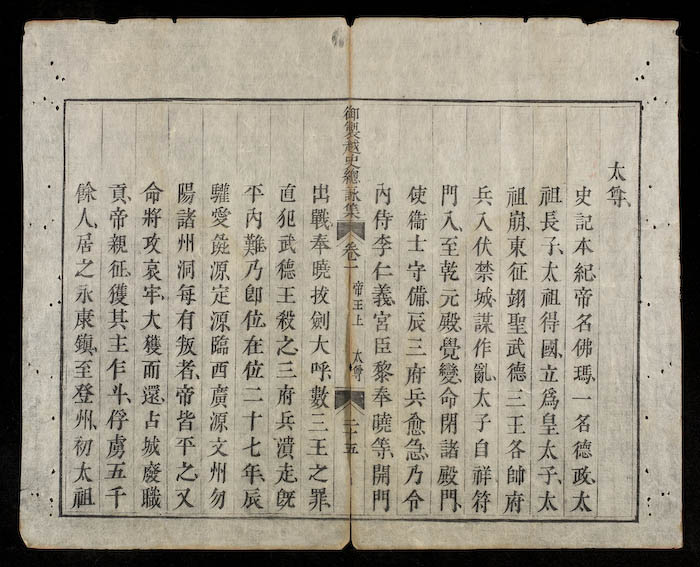 太尊
史記本紀帝名佛瑪一名德政太
祖長子太祖得國立爲皇太子太
祖崩東征翊聖武德三王各帥府
兵入伏禁城謀作亂太子自祥符
門入至乾元殿覺變命閉諸殿門
使衞士守備辰三府兵愈急乃令
內侍李仁義宮臣黎奉曉等開門
御製越史總詠集 卷一 帝王上 太尊 二十五
出戰奉曉拔劍大呼數三王之罪
直犯武德王殺之三府兵潰走旣
平內難乃卽位在位二十七年辰
驩愛源定源臨西廣源文州勿
陽諸州洞每有叛者帝皆平之又
命將攻哀牢大獲而還占城廢職
貢帝親征獲其主乍斗俘虜五千
餘人居之永康鎮至登州初太祖